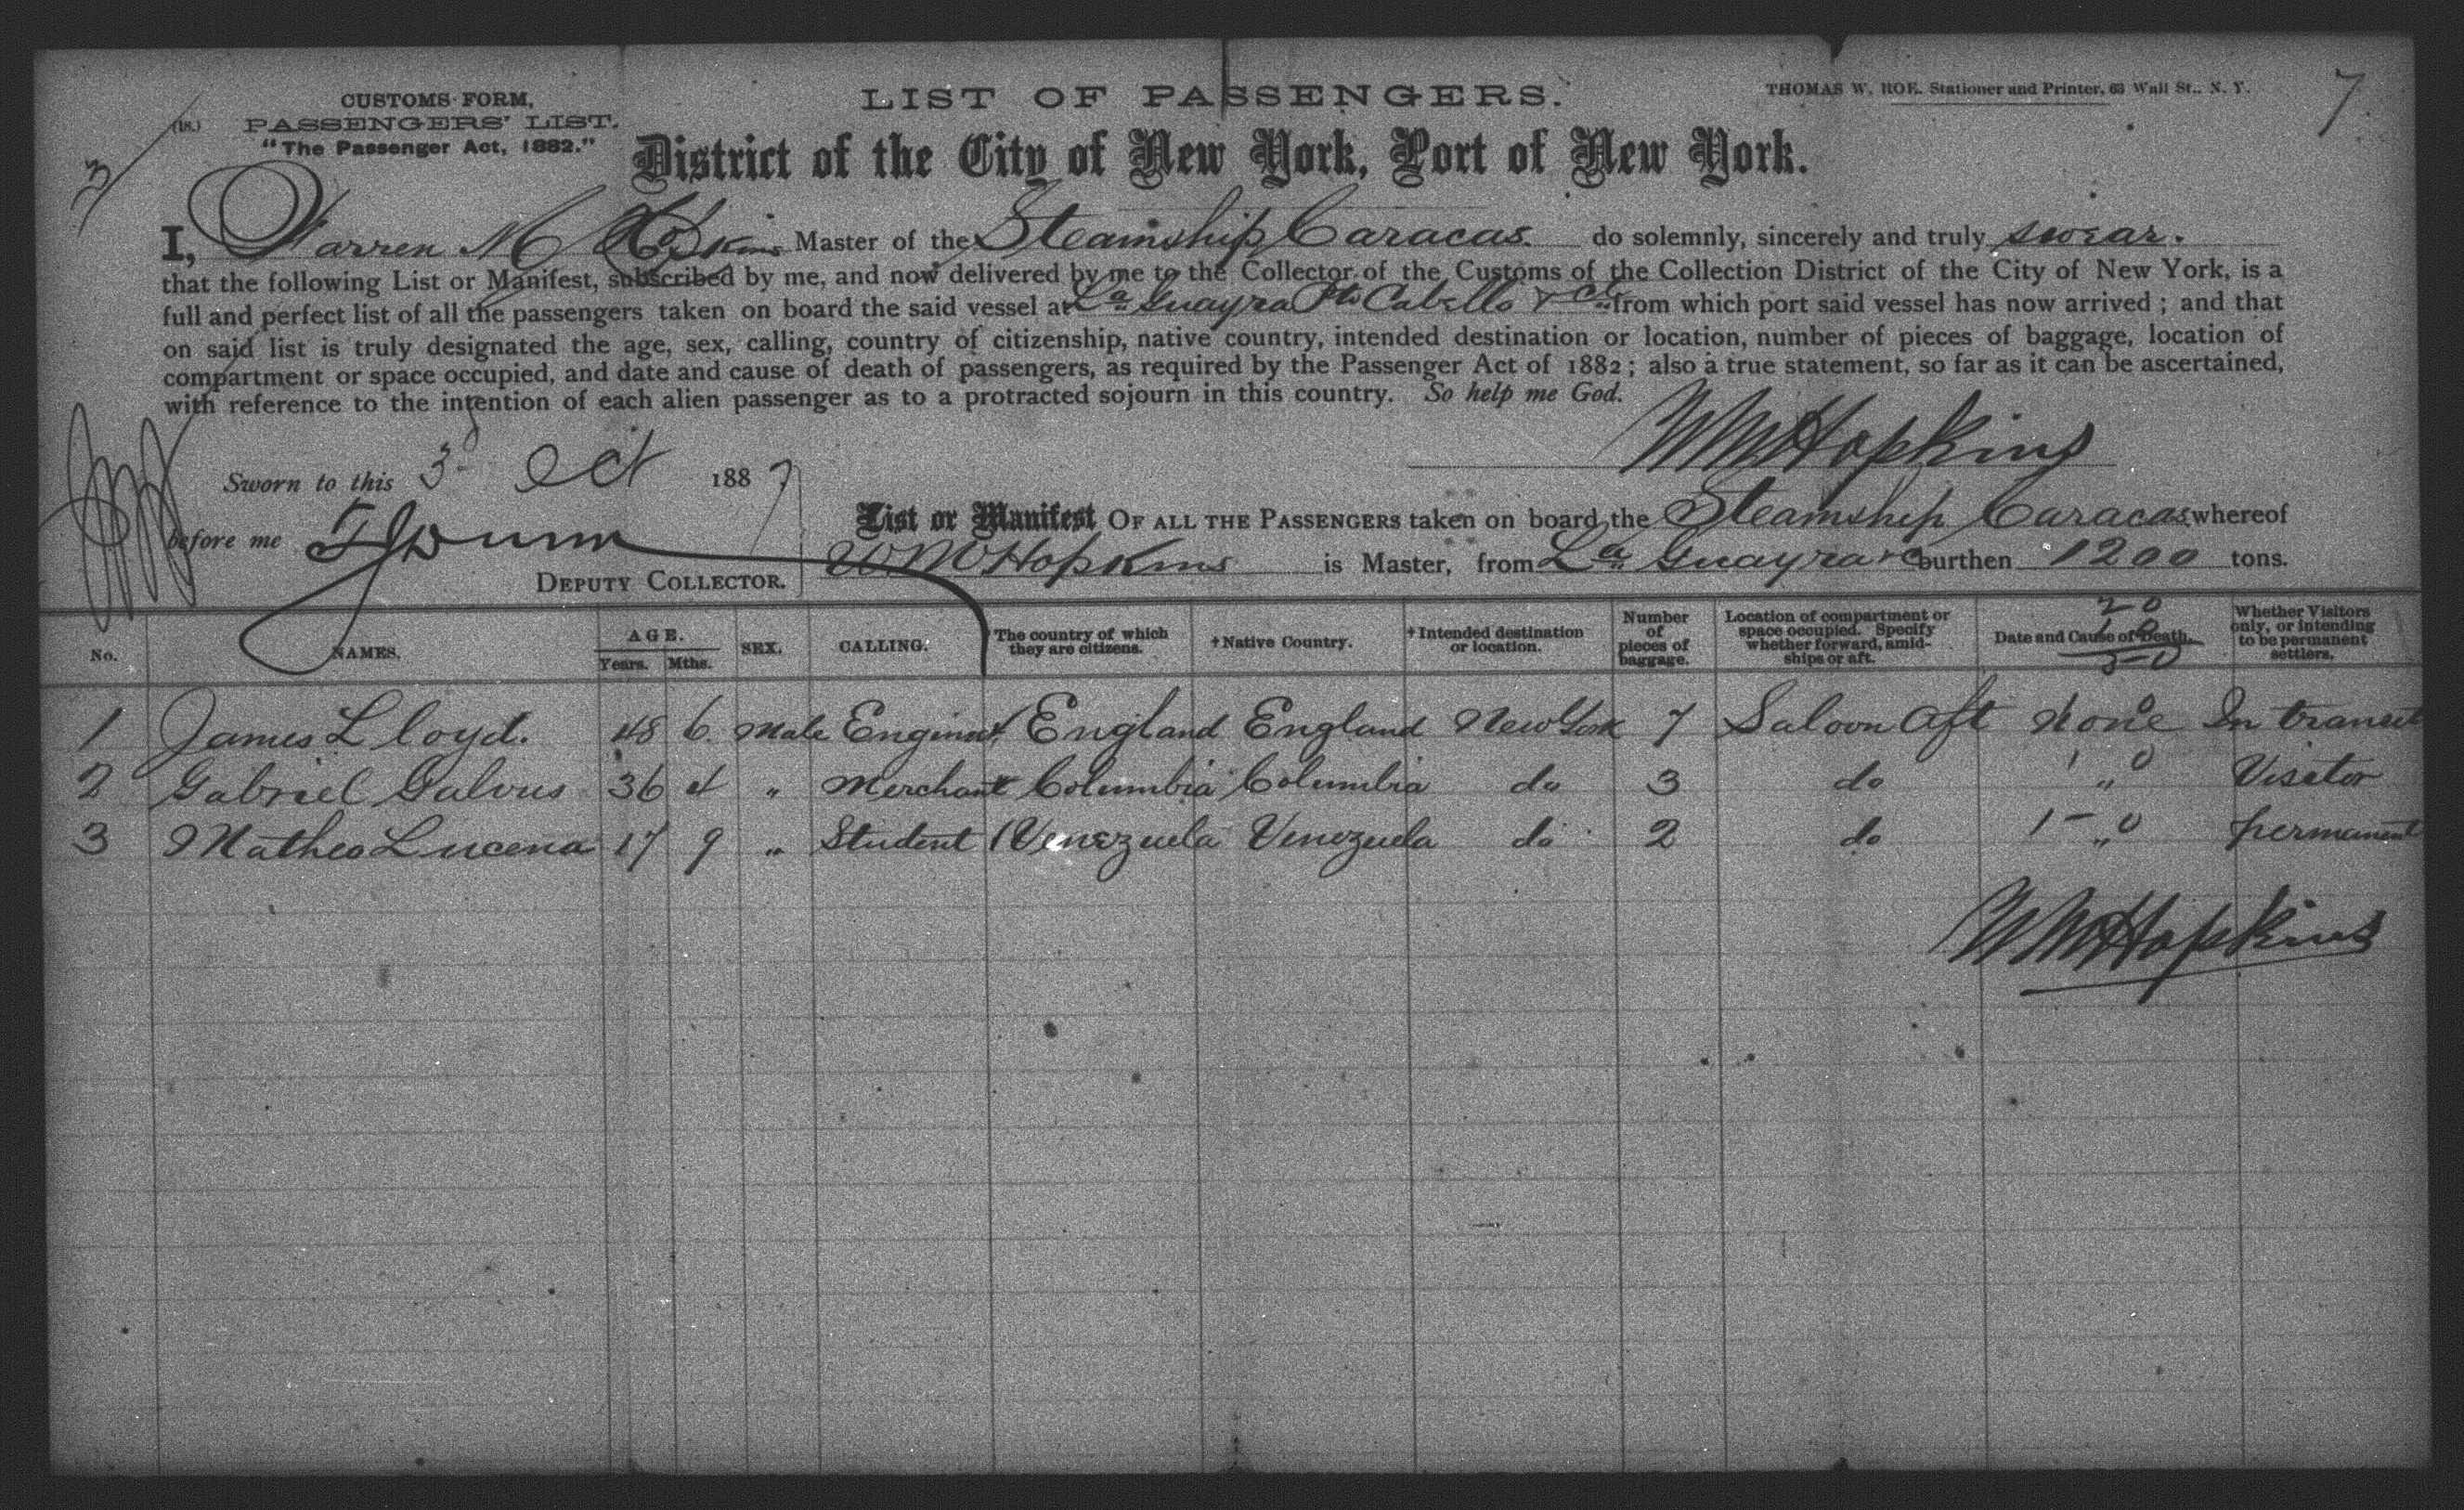 CUSTOMS FORM,
(18.) PASSENGERS' LIST.
"The Passenger Act, 1882."
LIST OF PASSENGERS.
THOMAS W. ROE. Stationer and Printer, 63 Wall St., N. Y.
7
3/
District of the City of New York, Port of New York.
I, Warren M Hopkins Master of the Steamship Caracas do solemnly, sincerely and truly swear.
that the following List or Manifest, subscribed by me, and now delivered by me to the Collector of the Customs of the Collection District of the City of New York, is a
full and perfect list of all the passengers taken on board the said vessel at La Guayra Pto Cabello & Co from which port said vessel has now arrived ; and that
on said list is truly designated the age, sex, calling, country of citizenship, native country, intended destination or location, number of pieces of baggage, location of
compartment or space occupied, and date and cause of death of passengers, as required by the Passenger Act of 1882 ; also a true statement, so far as it can be ascertained,
with reference to the intention of each alien passenger as to a protracted sojourn in this country. So help me God.
WMHopkins
Sworn to this 3 Oct 1887
before me
DEPUTY COLLECTOR.
List or Manifest OF ALL THE PASSENGERS taken on board the Steamship Caracas whereof
W.M Hopkins is Master, from La Guayra & C burthen 1200 tons.
No. NAMES. AGE. Years. Mths. SEX. CALLING. The country of which they are citizens. †Native Country. †Intended destination or location. Number of pieces of baggage. Location of compartment or space occupied. Specify whether forward, amidships or aft. Date and Cause of Death. Whether Visitors only, or intending to be permanent settlers.
20
10
50
1 James Lloyd. 48 6 Male Engineer England England New York 7 Saloon Aft None In transit
2 Gabriel Galvus 36 4 " Merchant Columbia Columbia do 3 do " Visitor
3 Matheo Lucena 17 9 " Student Venezuela Venezuela do 2 do " permanent
WMHopkins